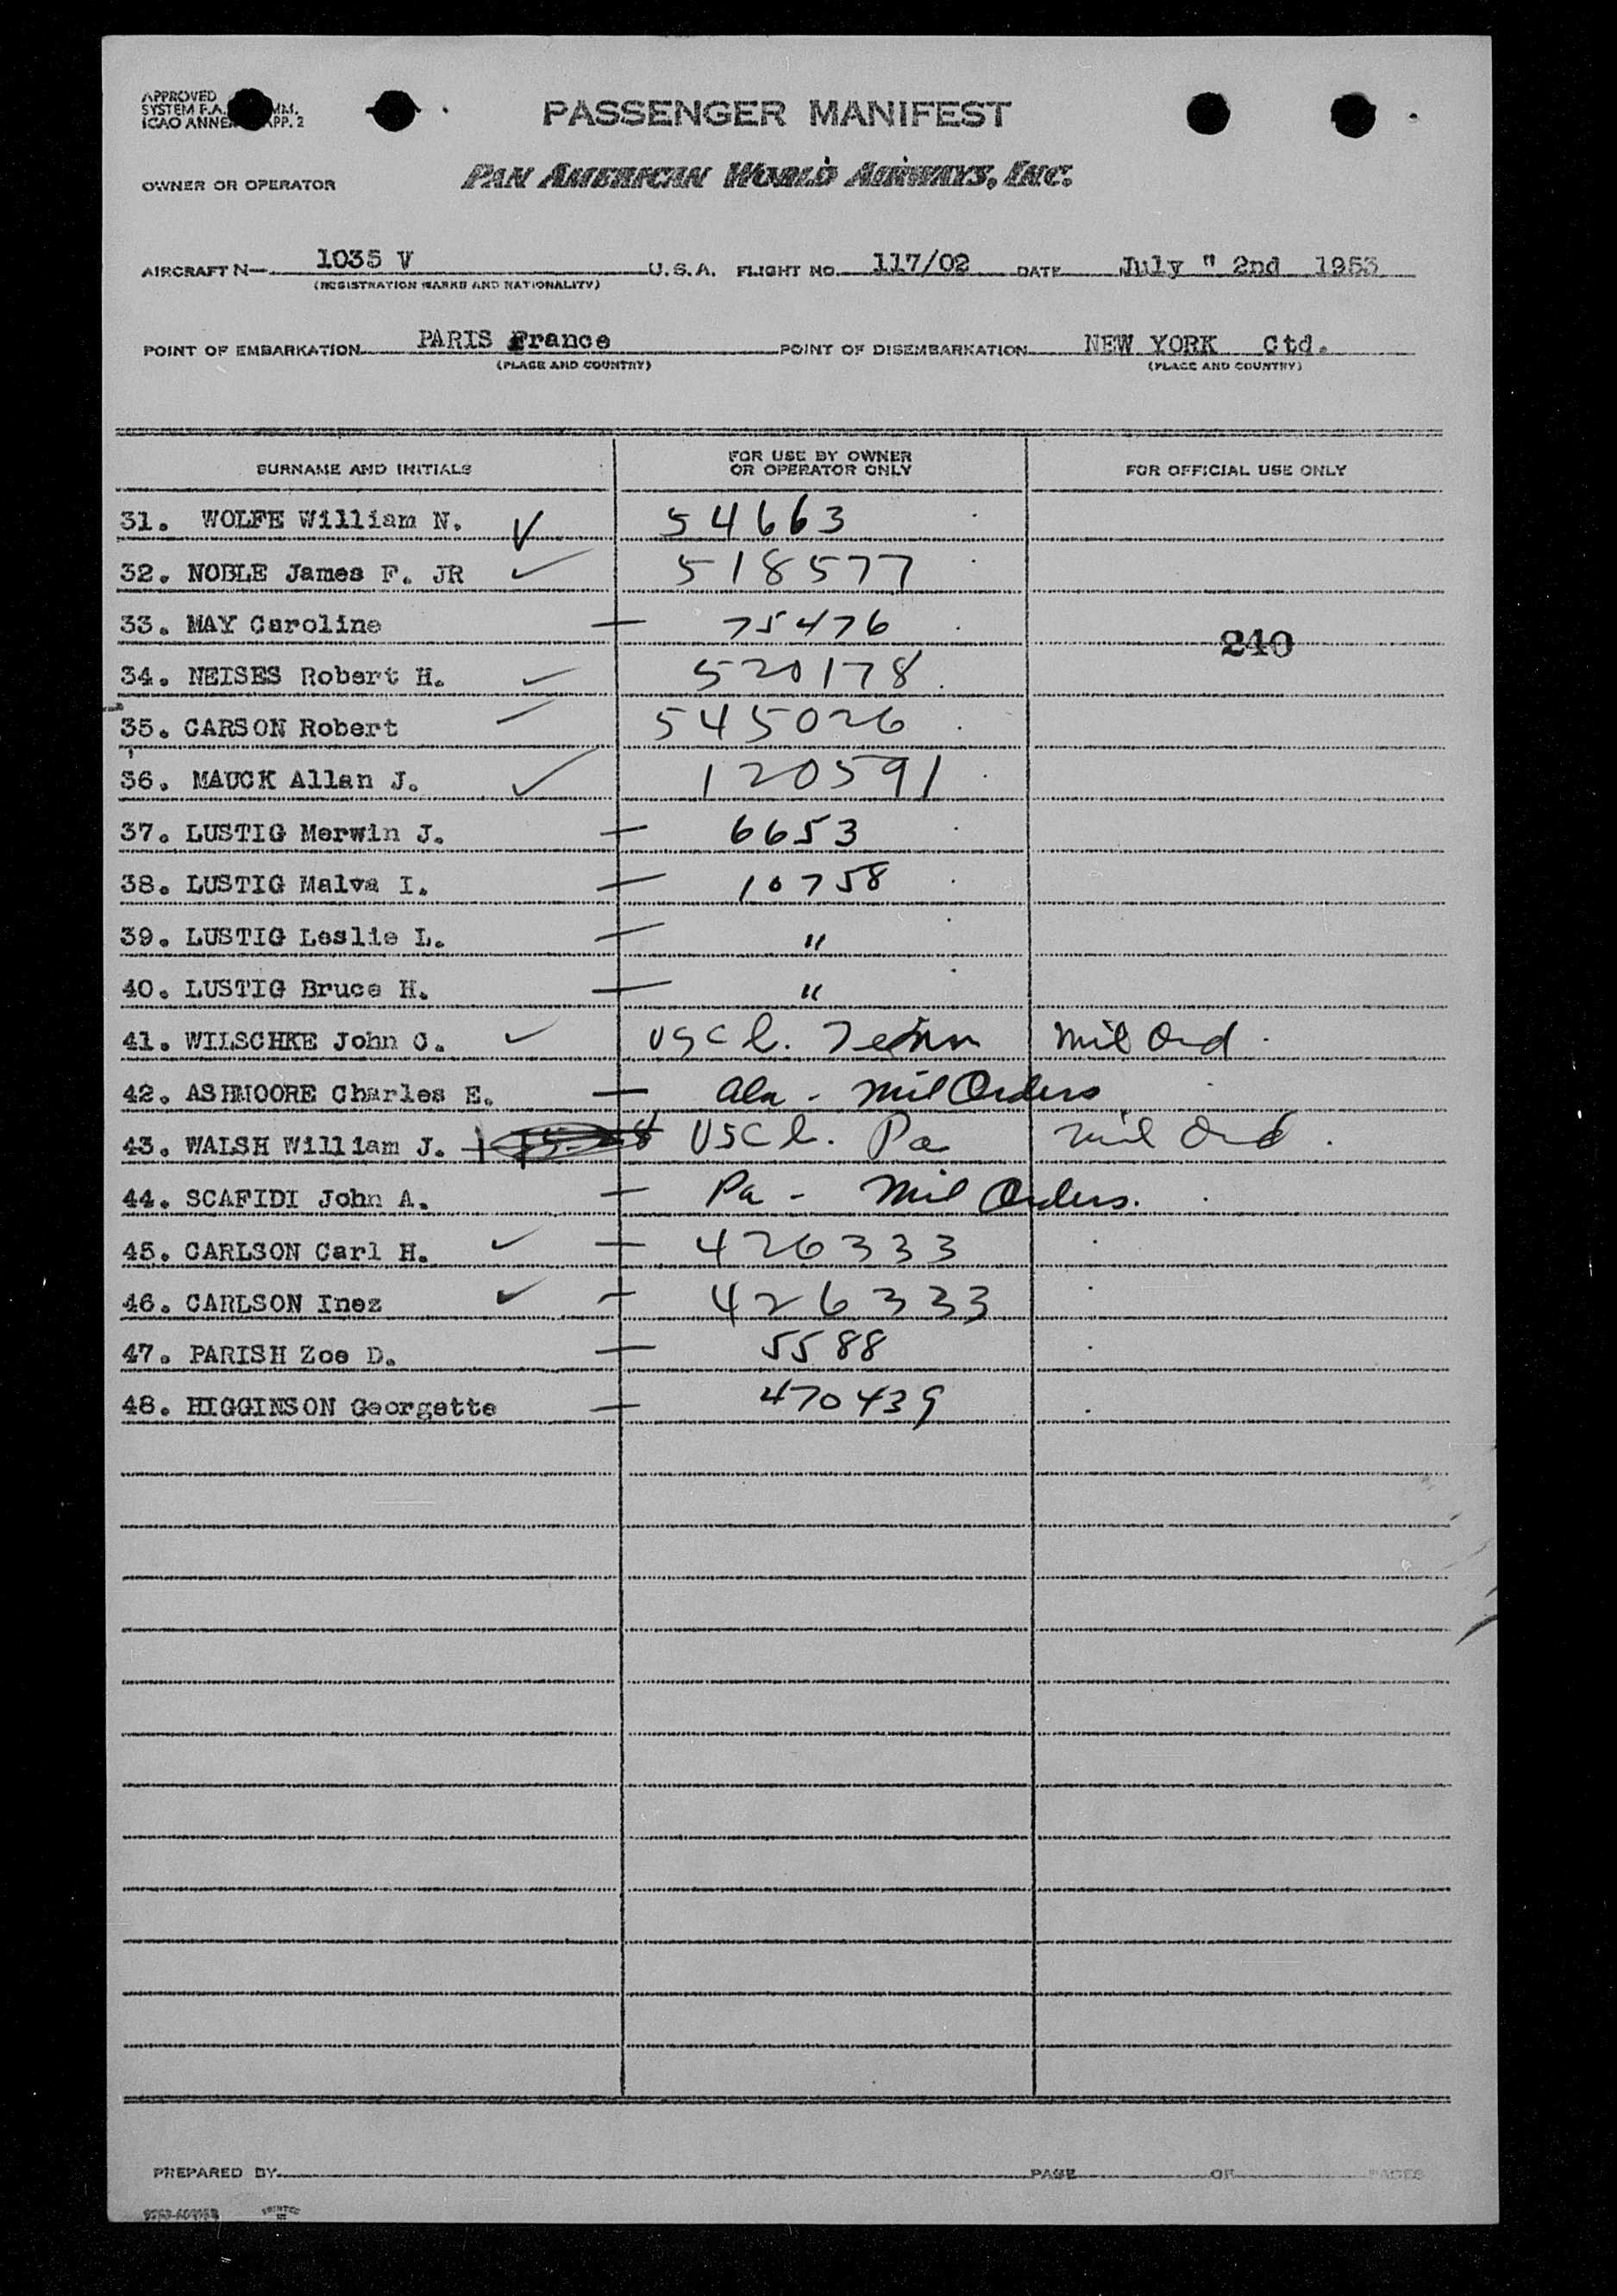 APPROVED
SYSTEM P.A.
ICAO ANNEX APP. 2
PASSENGER MANIFEST
OWNER OR OPERATOR PAN AMERICAN WORLD AIRWAYS, INC.
AIRCRAFT N— 1035 V U.S.A. FLIGHT NO. 117/02 DATE July " 2nd 1953
(REGISTRATION MARKS AND NATIONALITY)
POINT OF EMBARKATION PARIS France POINT OF DISEMBARKATION NEW YORK Ctd.
(PLACE AND COUNTRY) (PLACE AND COUNTRY)
SURNAME AND INITIALS FOR USE BY OWNER OR OPERATOR ONLY FOR OFFICIAL USE ONLY
31. WOLFE William N. 54663
32. NOBLE James F. JR 518577
33. MAY Caroline 75476
240
34. NEISES Robert H. 520178
35. CARSON Robert 545026
36. MAUCK Allan J. 120591
37. LUSTIG Merwin J. 6653
38. LUSTIG Malva I. 10758
39. LUSTIG Leslie L. "
40. LUSTIG Bruce H. "
41. WILSCHKE John C. USC Mil Ord
42. ASHMOORE Charles E. Ala - Mil Orders
43. WALSH William J. USC Pa Mil Ord.
44. SCAFIDI John A. Pa - Mil Orders.
45. CARLSON Carl H. 426333
46. CARLSON Inez 426333
47. PARISH Zoe D. 5588
48. HIGGINSON Georgette 470439
PREPARED BY PAGE OF PAGES
PRINTED